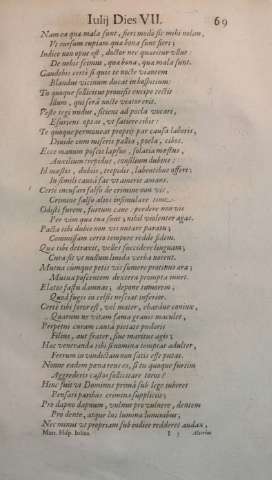 Iulij Dies VII. 69
Nam ea quæ mala sunt, fieri modò sic mihi nolam,
Vt rursum cuptam quæ bona sunt fieri;
Iudice non opus est, doctor nec quæritur vllus
De nobis scimus, quæ bona, quæ mala sunt.
Gaudebis certè si quis te nocte viantem
Blandus vicinum ducat in hospitium:
Tu quoque sollicitus prouisis excipe tectis
Illum, qui serâ nocte viator erit.
Poste tegi nudus, sitiens ad pocla vocari,
Esuriens optas, vt saturere cibis:
Te quoque permoueat propriis par causa laboris,
Diuide cum miseris pallia, pocla, cibos.
Ecce manum posces lapsus, solatia mœstus,
Auxilium trepidus, consilium dubius:
Id mœstis, dubiis, trepidis, labentibus offers:
In simili causâ fac vt ameris amans.
Certè incusari falso de crimine non vis,
Crimine falso alios insimulare time.
Odisti furem, furtum caue: perdere non vis
Per vim quæ tua sunt; nihil violenter agas.
Pacta tibi dubio non vis nutare paratu;
Commissam certo tempore redde fidem.
Quæ tibi detraxit, velles succidere linguam;
Cura sit vt nullum liuida verba notent.
Mutua cumque petis vis sumere protinus æra;
Mutua poscentem dextera prompta iuuet.
Elatos fastu damnas; depone tumorem,
Quod fugis in celsis nesciat inferior.
Certè tibi soror est, vel mater, charáue coniux,
Quarum ne vitam fama grauis maculet,
Perpetui curam causâ pietate pudoris
Filius, aut frater, siue maritus agis;
Hac venerande tibi si nomina temptet adulter,
Ferrum in vindictam non satis esse putas.
Nonne eâdem pœna reus es, si tu quoque furtim
Aggrederis castos sollicitare toros?
Hinc fuit vt Dominus primâ sub lege iuberet
Pensari paribus crimina suppliciis;
Pro dapno dapnum, vulnus pro vulnere, dentem
Pro dente, atque los lumina luminibus;
Nec minus vt propriam sub iudice redderet audax,
Mart. Hisp. Iulius. I 3 Alterius